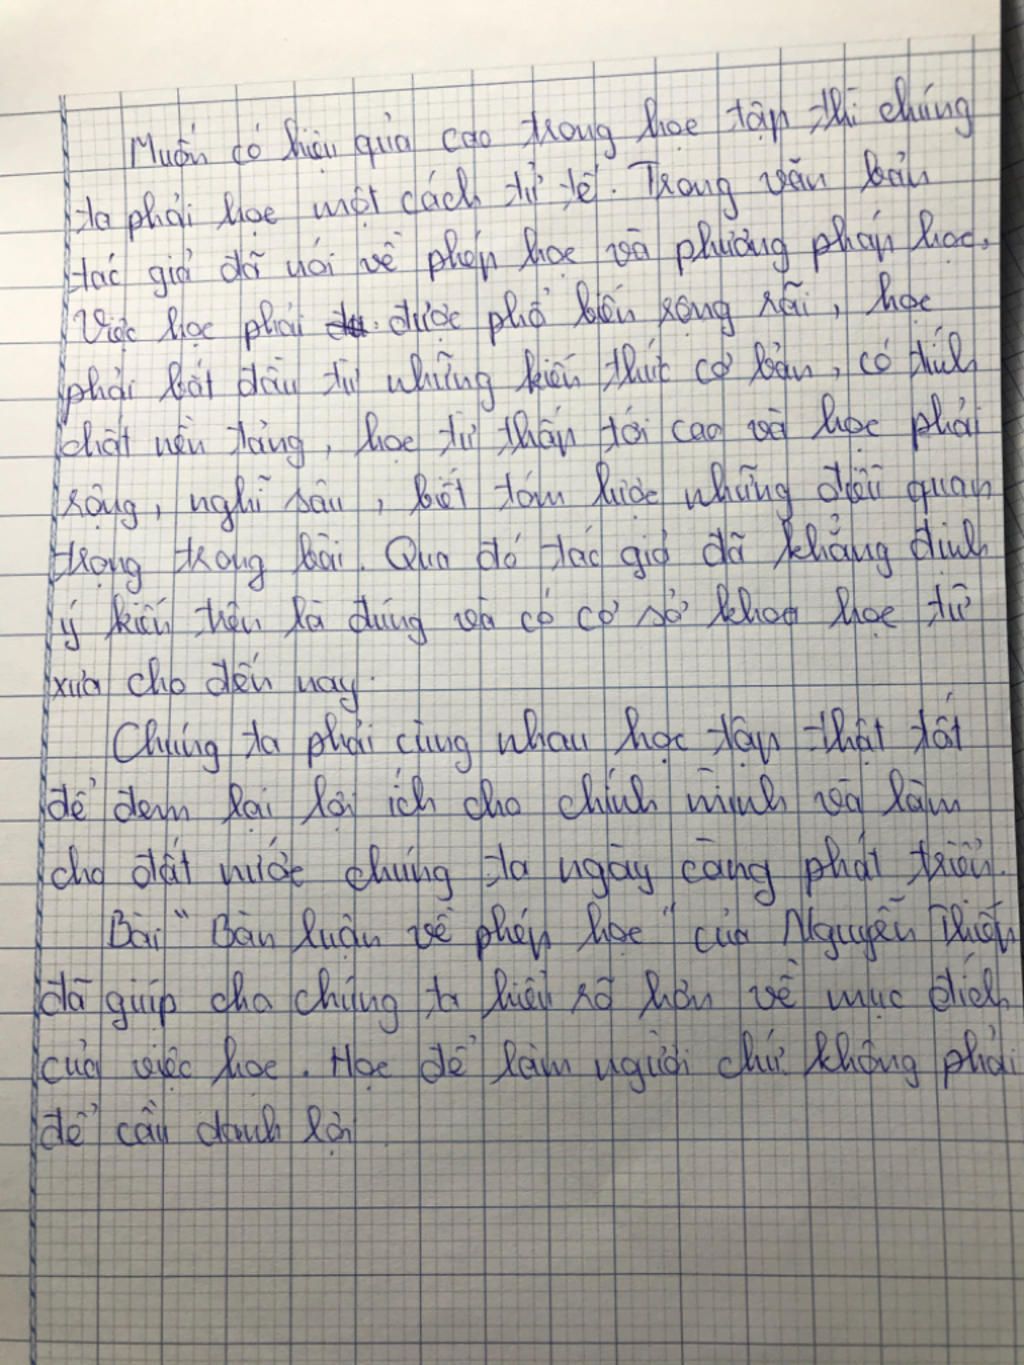 Muốn có hiệu quả cao trong học tập thì chúng
ta phải học một cách tử tế. Trong văn bản
tác giả đã nói về phép học và phương pháp học.
Việc học phải được phổ biến rộng rãi, học
phải bắt đầu từ những kiến thức cơ bản, có tính
chất nền tảng, học từ thấp tới cao và học phải
rộng, nghĩ sâu, biết tóm lược những điều quan
trọng trong bài. Qua đó tác giả đã khẳng định
ý kiến trên là đúng và có cơ sở khoa học từ
xưa cho đến nay.
Chúng ta phải cùng nhau học tập thật tốt
để đem lại lợi ích cho chính mình và làm
cho đất nước chúng ta ngày càng phát triển.
Bài "Bàn luận về phép học" của Nguyễn Thiếp
đã giúp cho chúng ta hiểu rõ hơn về mục đích
của việc học. Học để làm người chứ không phải
để cầu danh lợi